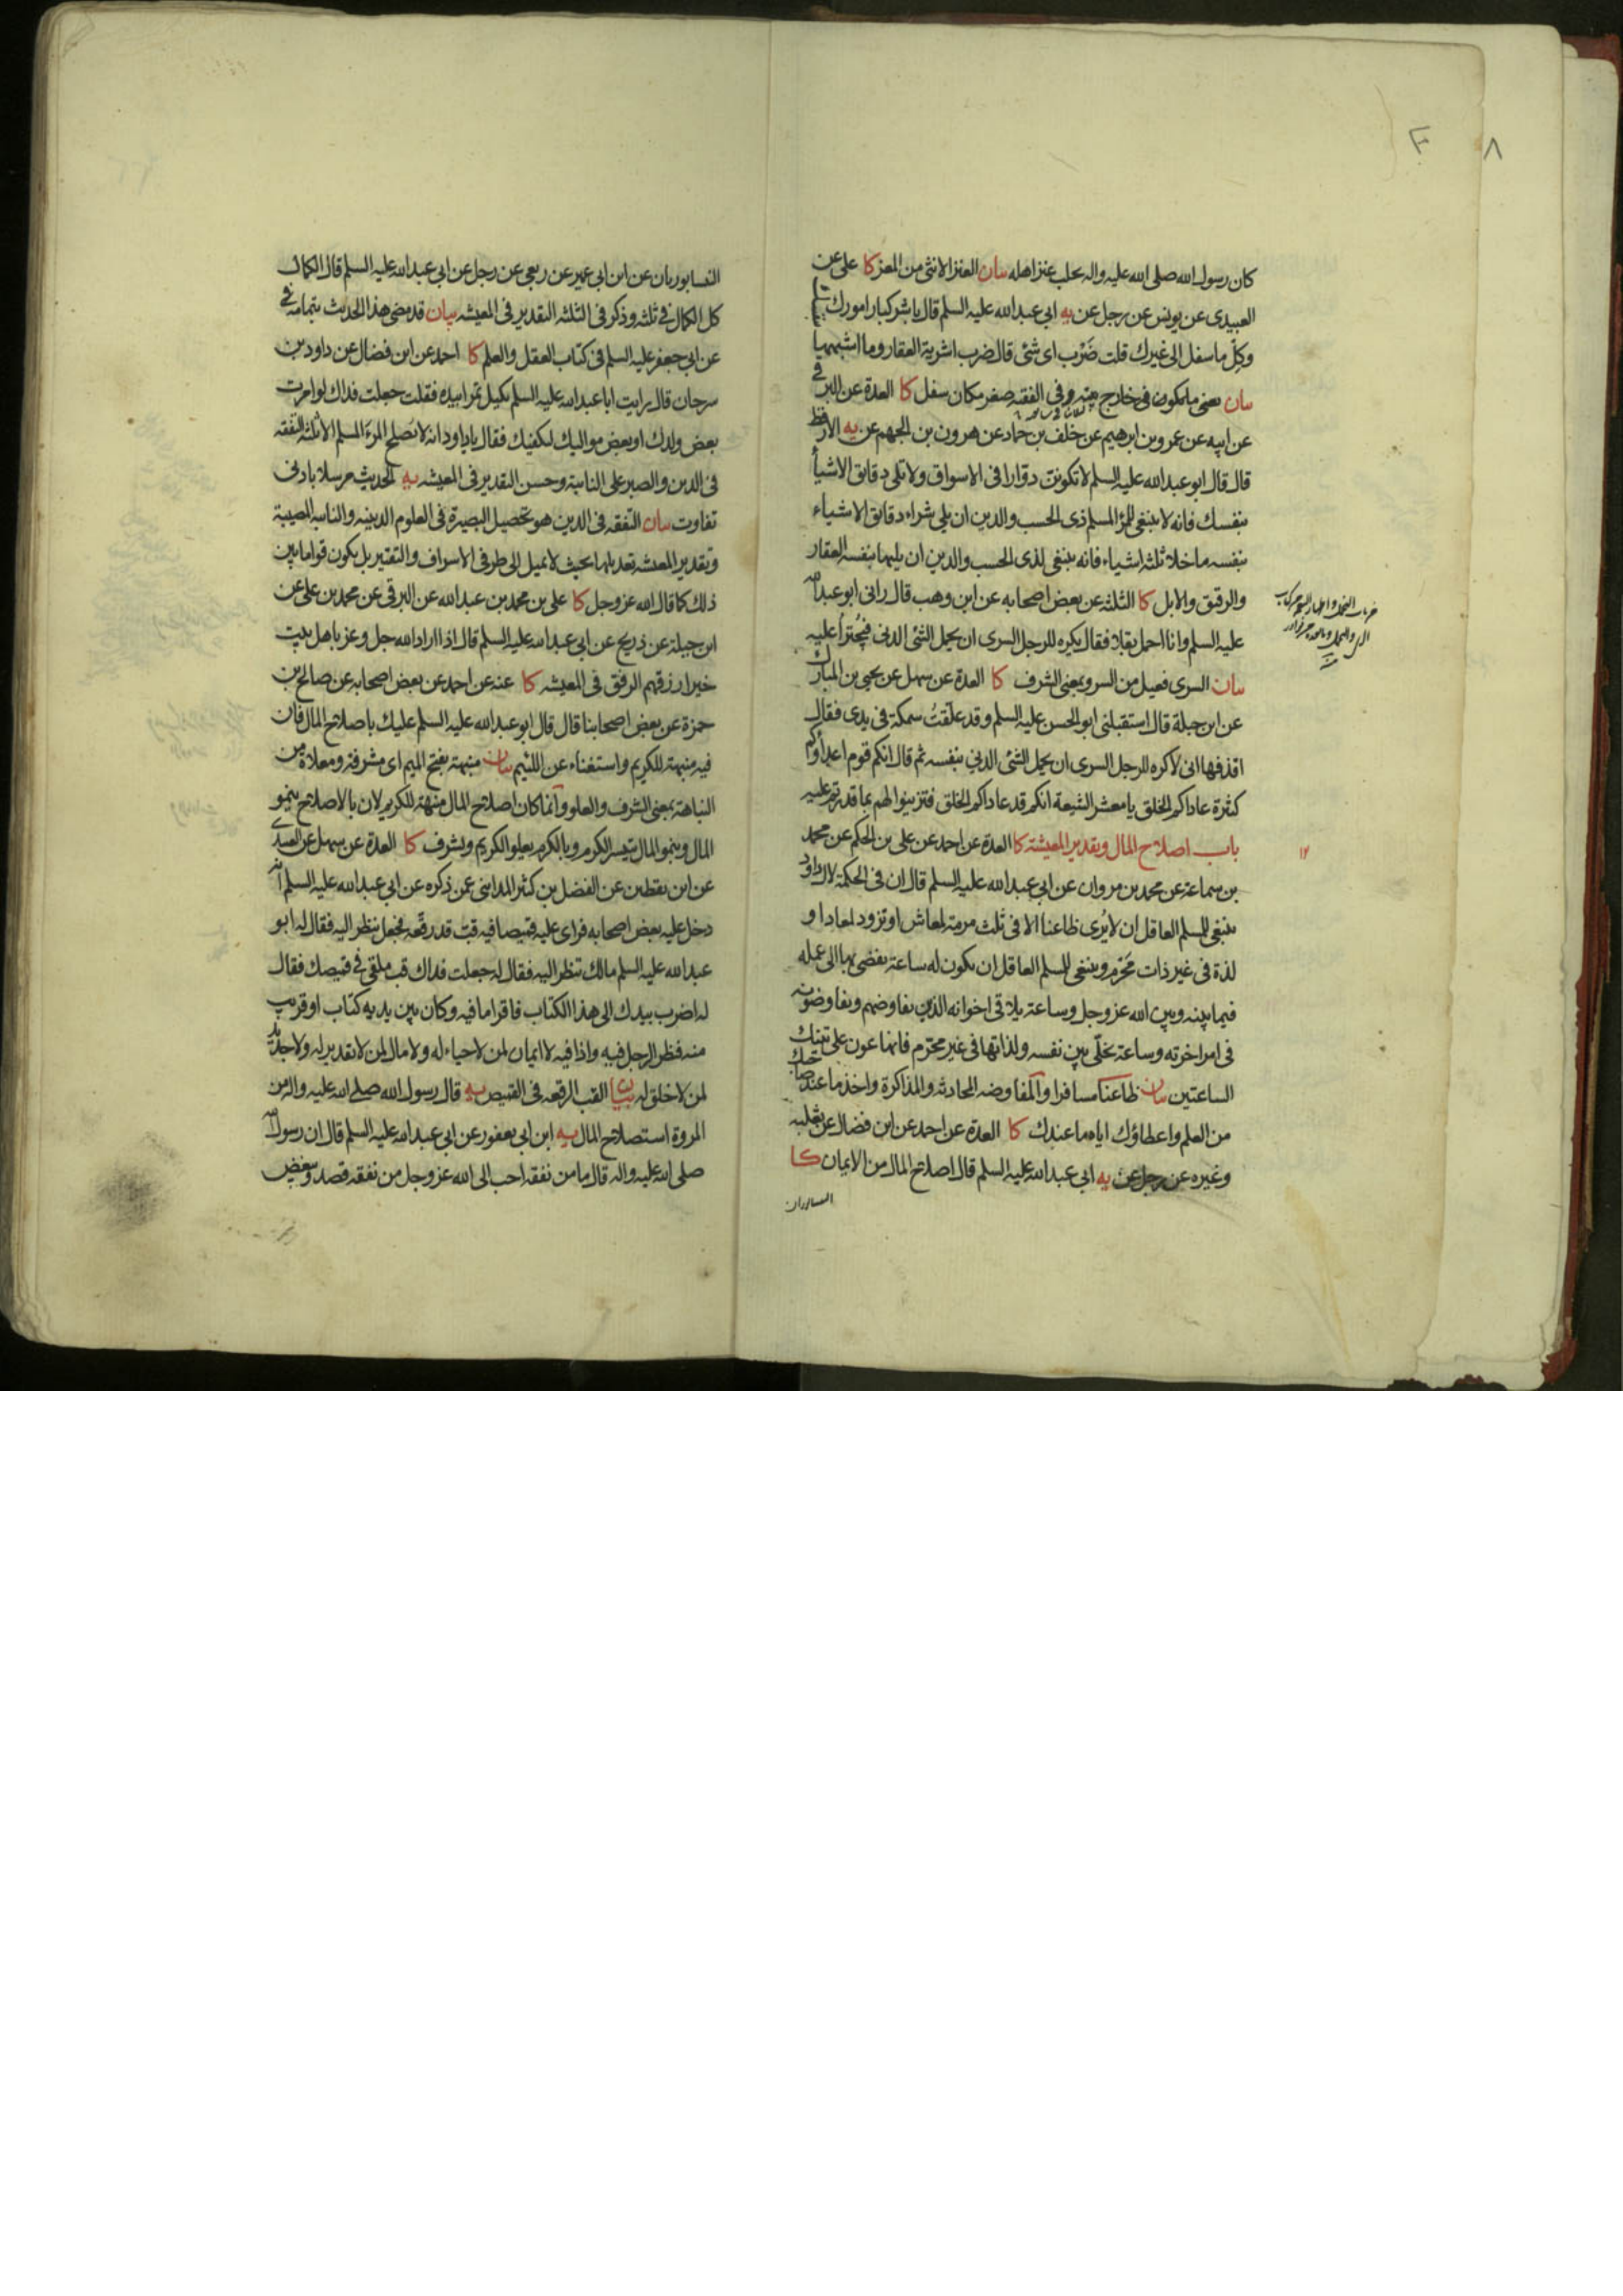 ٨
كان رسول الله صلى الله عليه واله يحلب عنز اهله بيان العنز الانثى من المعز كا على عن
العبيدى عن يونس عن رجل عن به ابي عبد الله عليه السلم قال باشر كبار امورك بنفسك
وكل ما سفل الى غيرك قلت ضَرْب اى شئ قال ضرب اشرية العقار وما اشبهها
بيان يعنى ما يكون فى خارج بيته وفى الفقه صغر مكان سفل كا العدة عن البرقي
عن ابيه عن عمرو بن ابرهيم عن خلف بن حماد عن هرون بن الجهم عن به الارقط
قال قال ابو عبد الله عليه السلم لا تكونن دوّارا فى الاسواق ولا تلى دقايق الاشيأ
بنفسك فانه لا ينبغى للمرؤ المسلم ذى الحسب والدين ان يلى شراء دقايق الاشياء
بنفسه ما خلا ثلثة اشياء فانه ينبغى لذى الحسب والدين ان يليها بنفسه العقار
والرقيق والابل كا الثلثة عن بعض اصحابه عن ابن وهب قال رانى ابو عبد الله
عليه السلم وانا احمل بقلا فقال يكره للرجل السرى ان يحمل الشئ الدنى فيُجترأ عليه
بيان السرى فعيل من السرو بمعنى الشرف كا العدة عن سهل عن يحيى بن المبارك
عن ابن جبلة قال استقبلنى ابو الحسن عليه السلم وقد علّقتُ سمكة فى يدى فقال
اقذفها انى لاكره للرجل السرى ان يحمل الشئ الدني بنفسه ثم قال انكم قوم اعداؤكم
كثرة عاداكم الخلق يا معشر الشيعة انكم قد عاداكم الخلق فتزينوا لهم بما قدرتم عليه
باب اصلاح المال وتقدير المعيشة كا العدة عن احمد عن على بن الحكم عن محمد
١٢
بن سماعة عن محمد بن مروان عن ابى عبد الله عليه السلم قال ان فى الحكمة لال داود
ينبغى للمسلم العاقل ان لا يُرى ظاعنا الا فى ثلث مرمة لمعاش او تزود لمعاد او
لذة فى غير ذات مَحَرّم وينبغى للمسلم العاقل ان يكون له ساعة يفضى بها الى عمله
فيما بينه وبين الله عز وجل وساعة يلاقى اخوانه الذين يفاوضهم ويفاوضونه
فى امر اخرته وساعة يخلّى بين نفسه ولذاتها فى غير محرّم فانها عون على تينك
الساعتين بيان ظاعنا مسافرا والمفاوضه المحادثه والمذاكرة واخذ ما عند صاحبك
من العلم واعطاؤك اياه ما عندك كا العدة عن احمد عن ابن فضال عن ثعلبه
وغيره عن رجل عن به ابي عبد الله عليه السلم قال اصلاح المال من الايمان كا
النيسابوريان
النيسابوريان عن ابن ابى عمير عن ربعى عن رجل عن ابى عبد الله عليه السلم قال الكمال
كل الكمال فى ثلثه وذكر فى الثلثه التقدير فى المعيشه بيان قد مضى هذا الحديث بتمامه فى
عن ابى جعفر عليه السلم فى كتاب العقل والعلم كا احمد عن ابن فضال عن داود بن
سرحان قال رايت ابا عبد الله عليه السلم يكيل تمرا بيده فقلت جعلت فداك لو امرت
بعض ولدك او بعض مواليك ليكفيك فقال يا داود انه لا يصلح المرءَ المسلم الا ثلثة التفقه
فى الدين والصبر على النائبة وحسن التقدير فى المعيشه يه الحديث مرسلا بادنى
تفاوت بيان التفقه فى الدين هو تحصيل البصيرة فى العلوم الدينيه والنائبه المصيبة
وتقدير المعيشه تعديلها بحيث لا يميل الى طرفى الاسراف والتقتير بل يكون قواما بين
ذلك كما قال الله عز وجل كا على بن محمد بن عبد الله عن البرقى عن محمد بن على عن
ابن جبلة عن ذريح عن ابي عبد الله عليه السلم قال اذا اراد الله جل وعز باهل بيت
خيرا رزقهم الرفق فى المعيشه كا عنه عن احمد عن بعض اصحابه عن صالح بن
حمزة عن بعض اصحابنا قال قال ابو عبد الله عليه السلم عليك باصلاح المال فان
فيه منبهة للكريم واستغناء عن اللئيم بيان منبهة بفتح الميم اى مشرفة ومعلاة من
النباهة بمعنى الشرف والعلو وانما كان اصلاح المال منبهة للكريم لان بالاصلاح ينمو
المال وبنمو المال يتيسر الكرم وبالكرم يعلو الكريم ويشرف كا العدة عن سهل عن العبيدى
عن ابن يقطين عن الفضل بن كثير المدائنى عمن ذكره عن ابي عبد الله عليه السلم انه
دخل عليه بعض اصحابه فراى عليه قميصا فيه قبّ قد رقّعه فجعل ينظر اليه فقال له ابو
عبد الله عليه السلم مالك تنظر اليه فقال له جعلت فداك قب ملقى فى قميصك فقال
له اضرب بيدك الى هذا الكتاب فاقرا ما فيه وكان بين يديه كتاب او قريب
منه فنظر الرجل فيه واذا فيه لا ايمان لمن لا حياء له ولا مال لمن لا تقدير له ولا جديد
لمن لا خلق له بيان القب الرقعه فى القميص يه قال رسول الله صلى الله عليه واله من
المروة استصلاح المال يه ابن ابى يعفور عن ابى عبد الله عليه السلم قال ان رسول الله
صلى الله عليه واله قال ما من نفقه احب الى الله عز وجل من نفقه قصد ويبغض